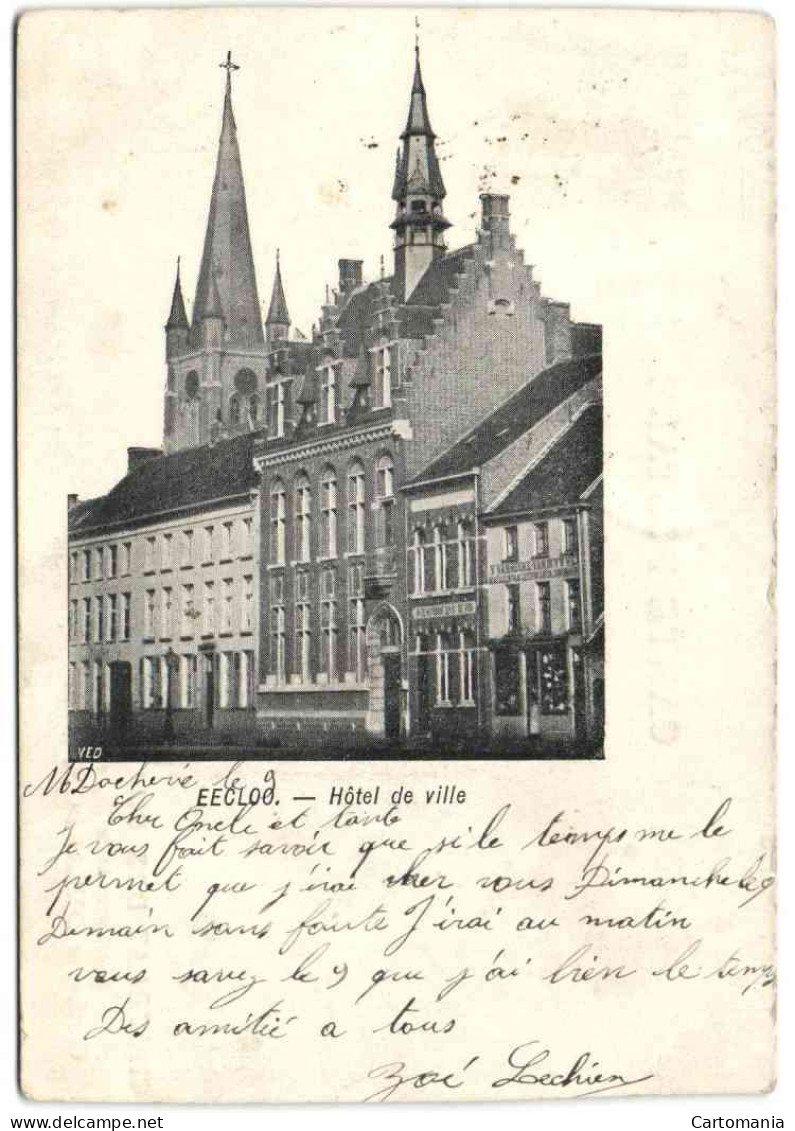 VED
EECLOO. — Hôtel de ville
le 9
Cher Oncle et tante
Je vous fait savoir que si le temps me le
permet que j'irai cher vous Dimanche le 9
Demain sans faute J'irai au matin
vous savez le 9 que j'ai bien le temps
Des amitié a tous
Zoé Lechien
www.delcampe.net
Cartomania